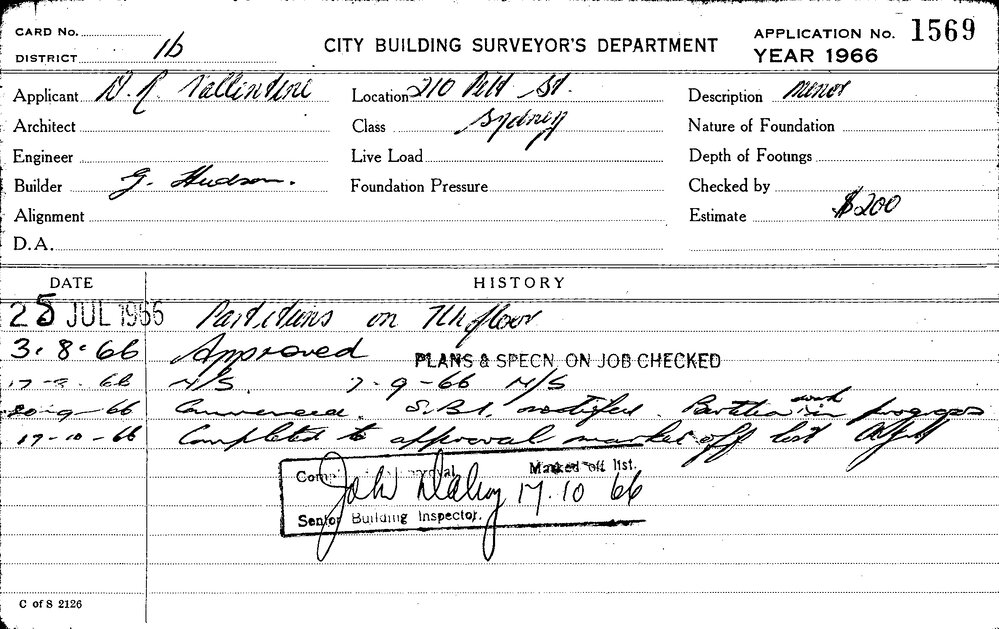 CARD No. APPLICATION No. 1569
DISTRICT 1b CITY BUILDING SURVEYOR'S DEPARTMENT YEAR 1966
Applicant N. R. Vallentine Location 210 Pitt St. Description Minor
Architect Class Sydney Nature of Foundation
Engineer Live Load Depth of Footings
Builder G. Hudson. Foundation Pressure Checked by
Alignment Estimate $200
D.A.
DATE HISTORY
25 JUL 1966 Partitions on 7th floor
3.8.66 Approved PLANS & SPECN. ON JOB CHECKED
66 N/S. 7-9-66 N/S
9-66 Commenced. S.B.I. notified. Partition work in progress
17-10-66 Completed to approval marked off list
Marked off list.
John Daley 17.10 66
Senior Building Inspector.
C of S 2126